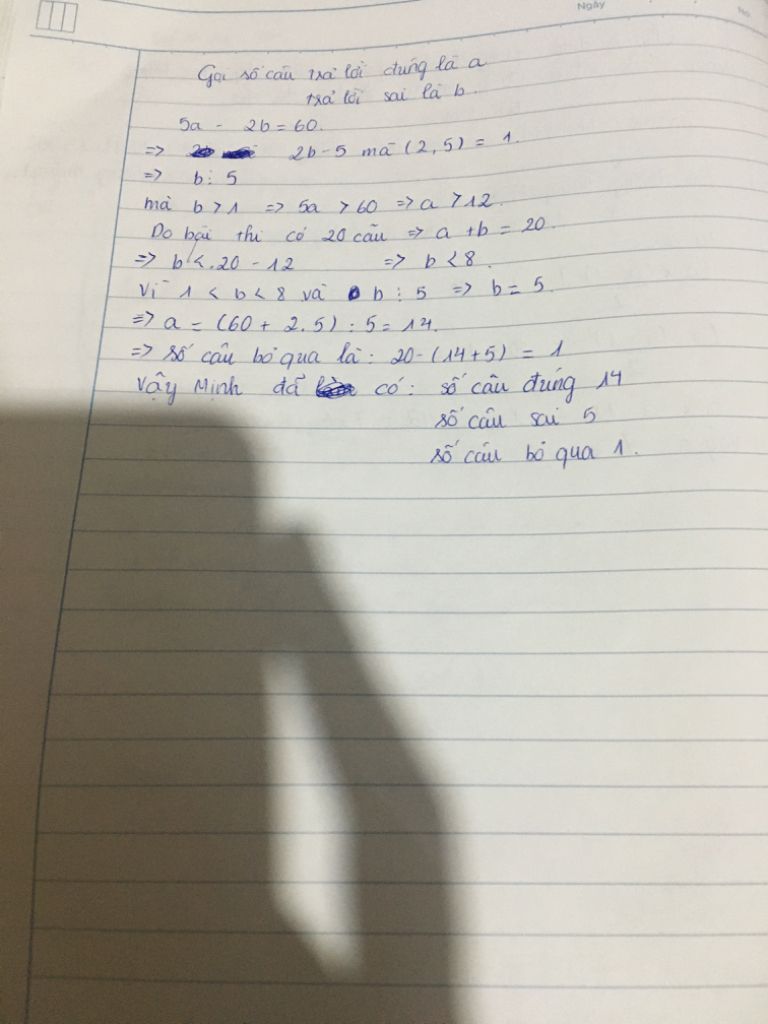 Ngày
No
Gọi số câu trả lời đúng là a
trả lời sai là b.
5a - 2b = 60.
=> 2b-5 mà (2,5) = 1.
=> b ⋮ 5
mà b > 1 => 5a > 60 => a > 12
Do bài thi có 20 câu => a + b = 20
=> b < 20 - 12 => b < 8.
Vì 1 < b < 8 và b ⋮ 5 => b = 5
=> a = (60 + 2.5) : 5 = 14.
=> số câu bỏ qua là: 20-(14+5) = 1
Vậy Minh đã có: số câu đúng 14
số câu sai 5
số câu bỏ qua 1.